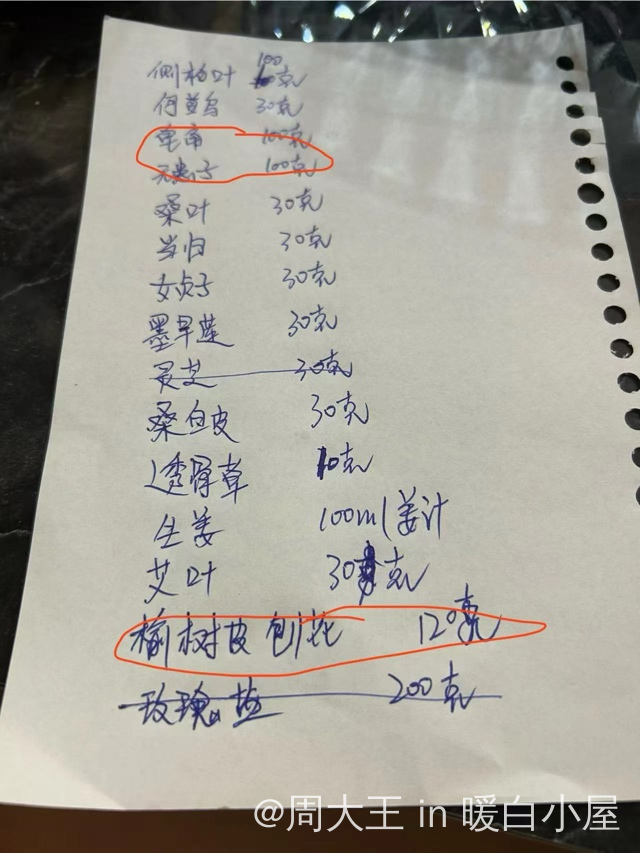 侧柏叶 100克
何首乌 30克
皂角 100克
无患子 100克
桑叶 30克
当归 30克
女贞子 30克
墨旱莲 30克
灵芝 30克
桑白皮 30克
透骨草 10克
生姜 100ml姜汁
艾叶 30克
榆树皮刨花 120克
玫瑰盐 200克
@周大王 in 暖白小屋